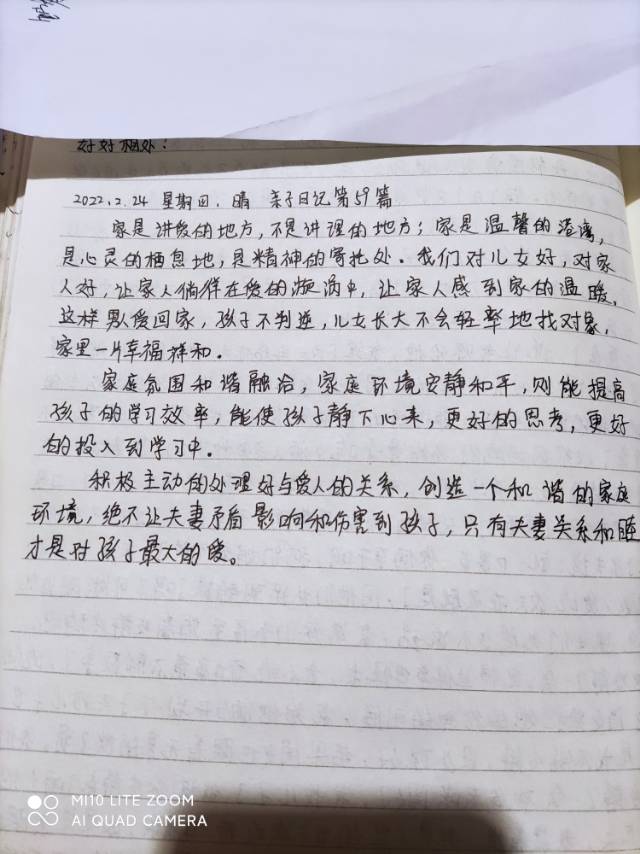 好好相处:
2022.2.24 星期四. 晴 亲子日记第59篇
家是讲爱的地方,不是讲理的地方;家是温馨的港湾,
是心灵的栖息地,是精神的寄托处。我们对儿女好,对家
人好,让家人徜徉在爱的漩涡中,让家人感到家的温暖。
这样男人爱回家,孩子不判逆,儿女长大不会轻率地找对象,
家里一片幸福祥和。
家庭氛围和谐融洽,家庭环境安静和平,则能提高
孩子的学习效率,能使孩子静下心来,更好的思考,更好
的投入到学习中。
积极主动的处理好与爱人的关系,创造一个和谐的家庭
环境,绝不让夫妻矛盾影响和伤害到孩子,只有夫妻关系和睦
才是对孩子最大的爱。
MI10 LITE ZOOM
AI QUAD CAMERA